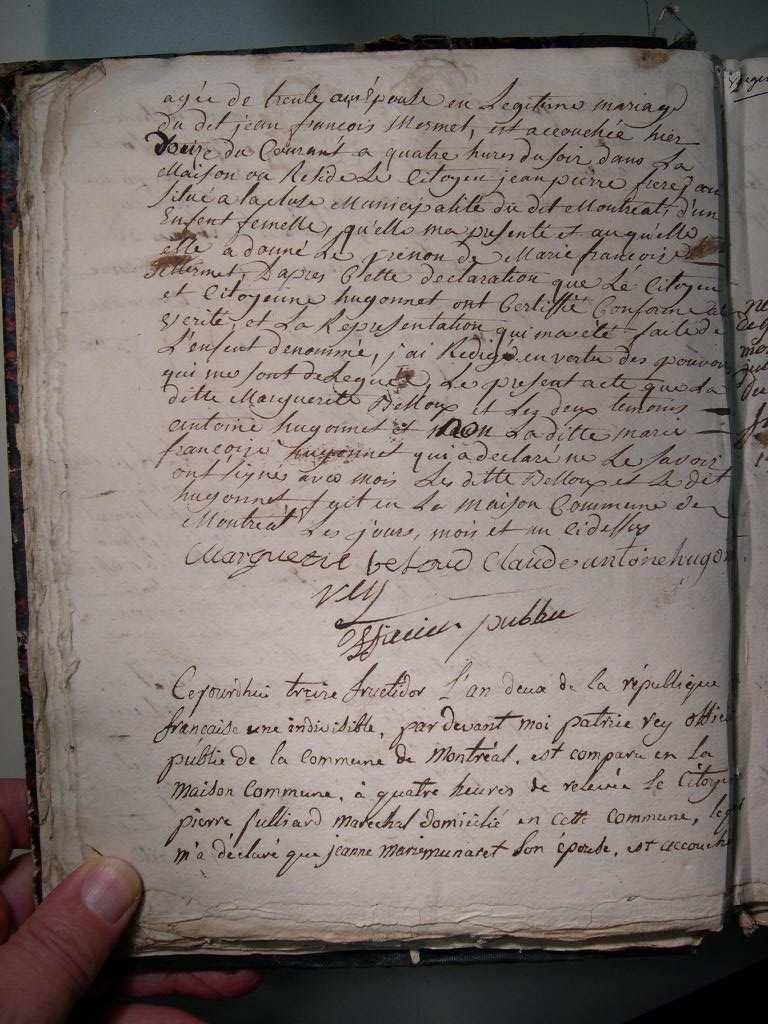 agée de trente ans Épouse en Legitime mariage
du dit jean francois Mermet, est accouchée hier
douze du Courant a quatre hures du soir dans La
Maison ou Reside Le Citoyen jean pierre
situé a la cluse Municipalité du dit Montreal, d'un
Enfent femelle, qu'elle ma presente et au qu'elle
elle a donné Le prenom de Marie francoise
Mermet, Dapres Cette declaration que Le Citoyen
et Citoyenne hugonnet ont Certiffié Conforme a la
verité, et La Representation qui ma été faite de
L'enfent denommé, j'ai Redigé en vertu des pouvoir
qui me sont delegués, Le present acte que La
ditte Marguerite Belloux et Les deux temoins
antoine hugonnet et non La ditte marie
francoise hugonnet qui a declaré ne Le savoir
ont signé avec mois Les dette Belloux et Le dit
hugonnet fait en La maison Commune de
Montreal Les jours, mois et an Cidessus
Marguerite beloud Claude antoine hugon
vey
officier public
Cejourdhui treize fructidor l'an deux de la république
française une indivisible, par devant moi patrice vey offici
public de la commune de Montréal, est comparu en la
maison commune, à quatre heures de relevée le Citoye
pierre Julliard marechal domicilié en cette commune, leq
m'a déclaré que jeanne marie munaret son épouse, est accouché